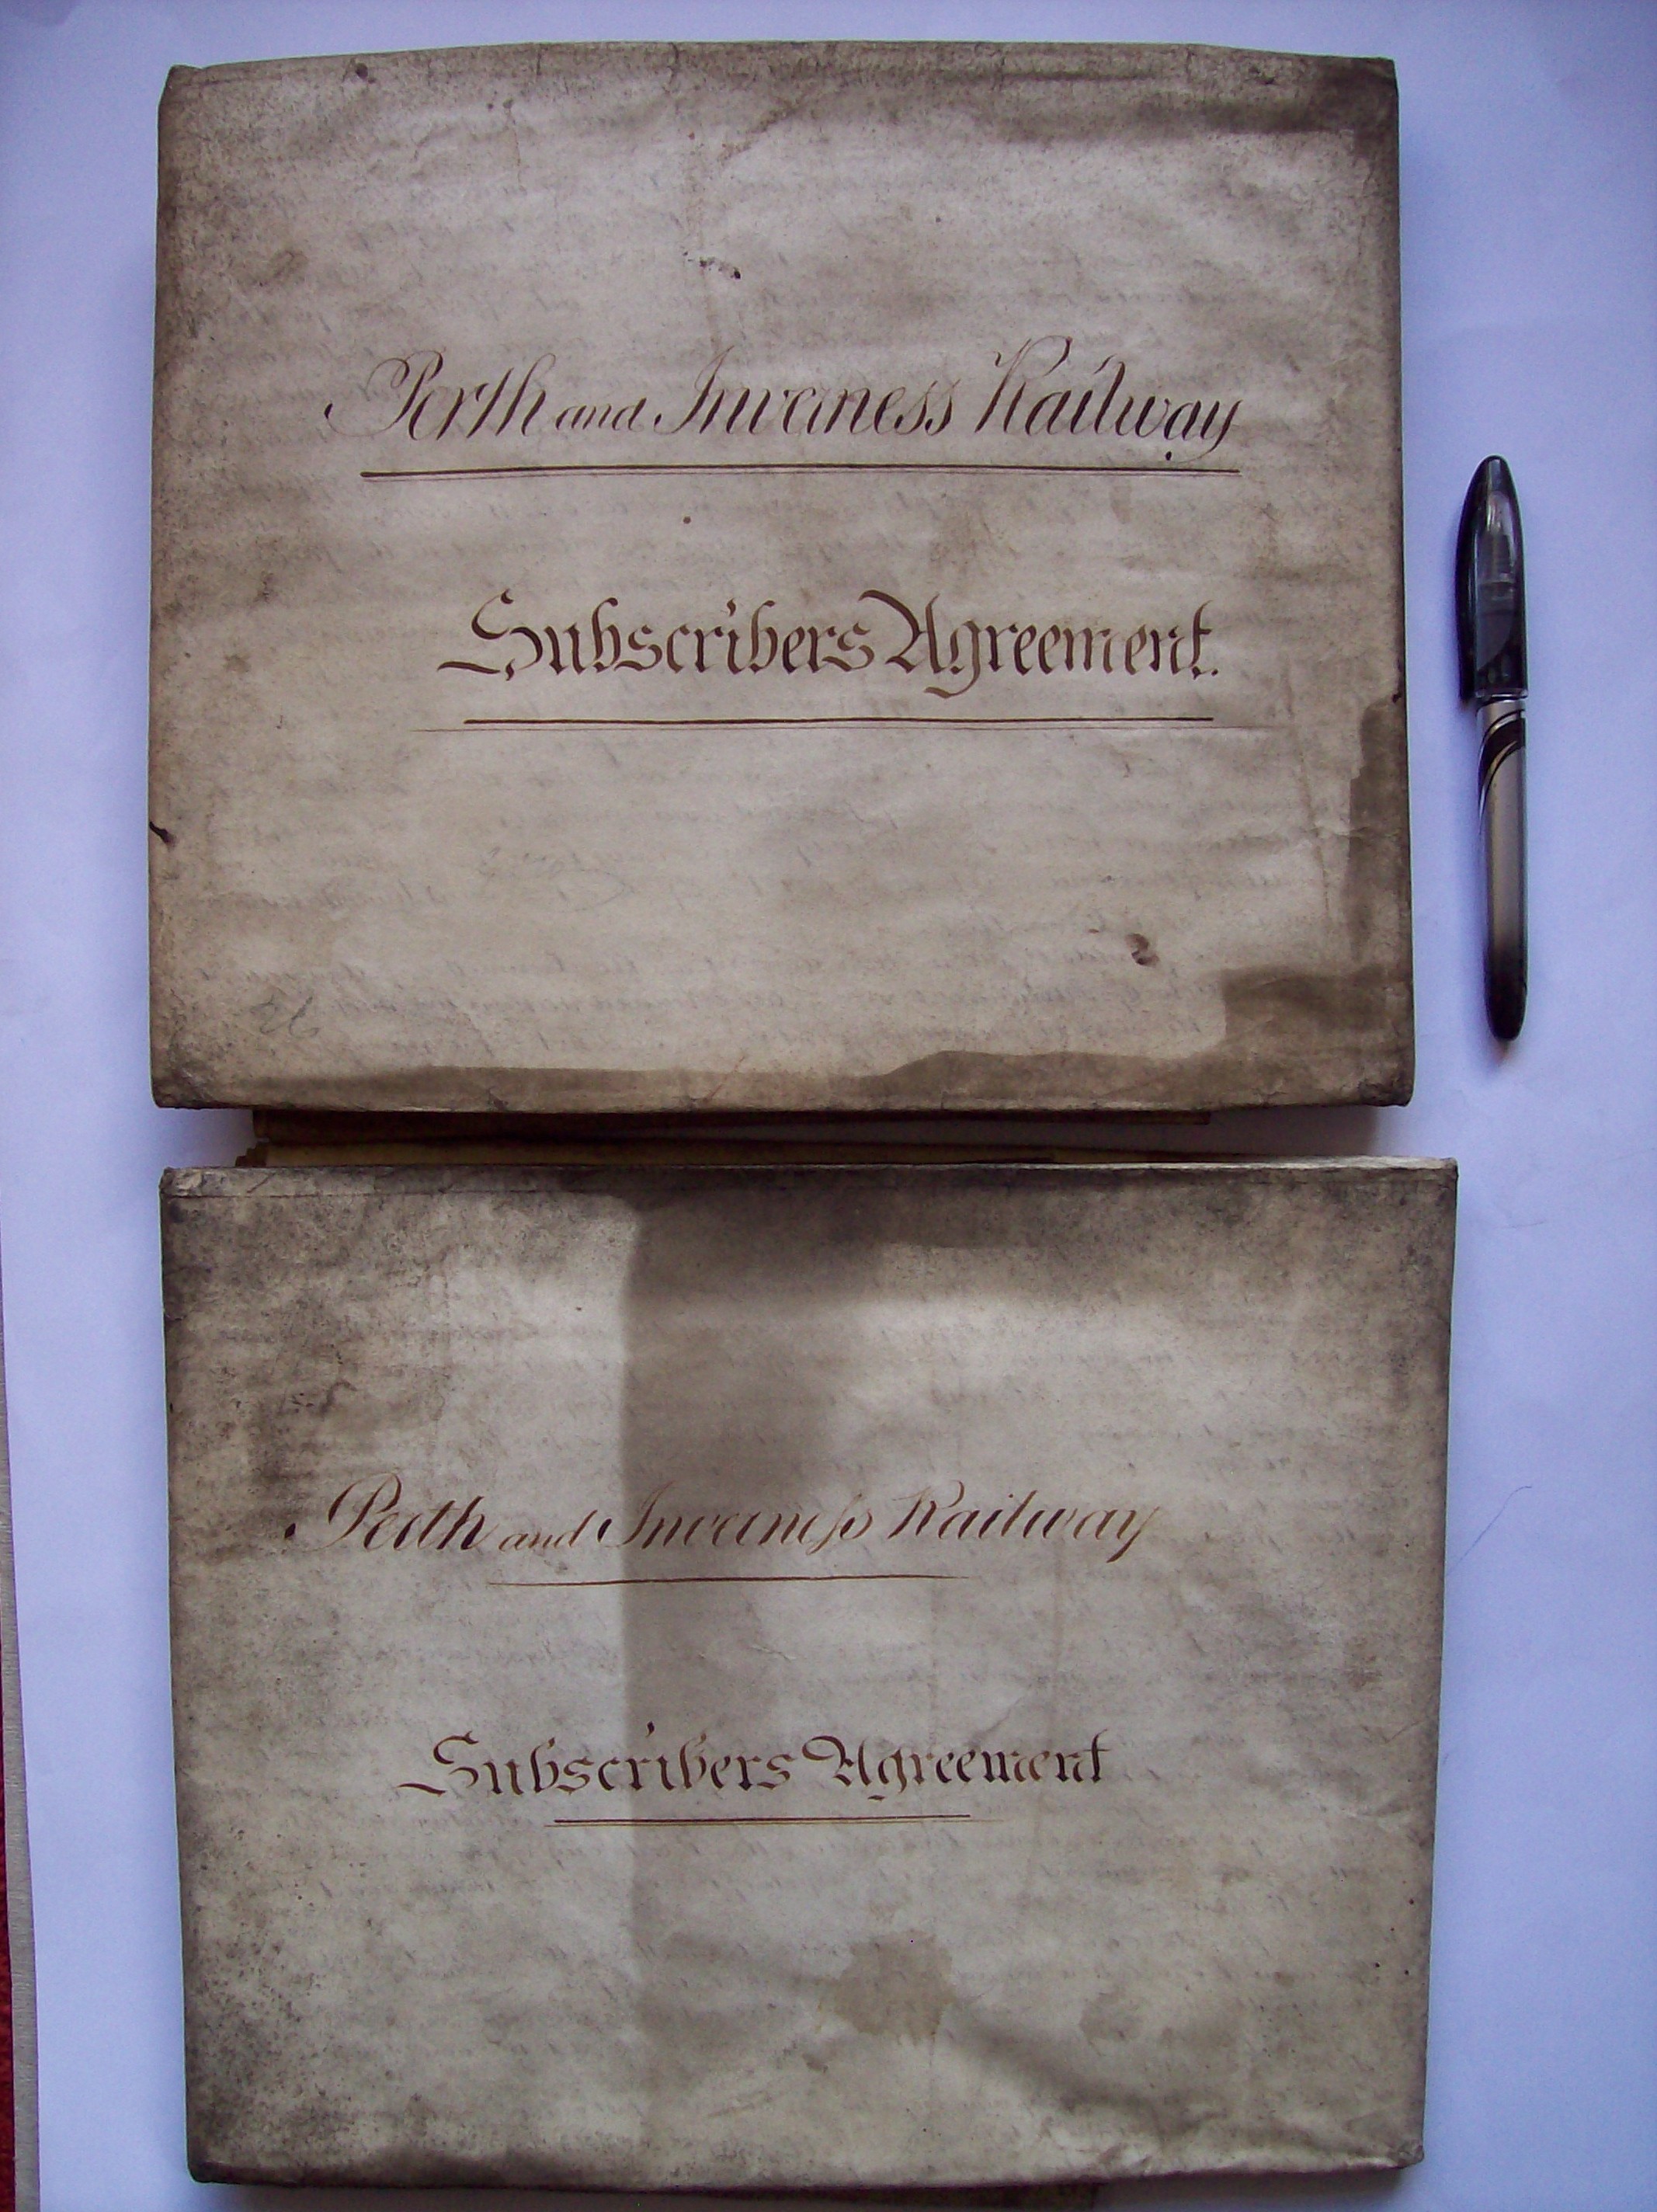 Perth and Inverness Railway
Subscribers Agreement.
Perth and Inverness Railway
Subscribers Agreement